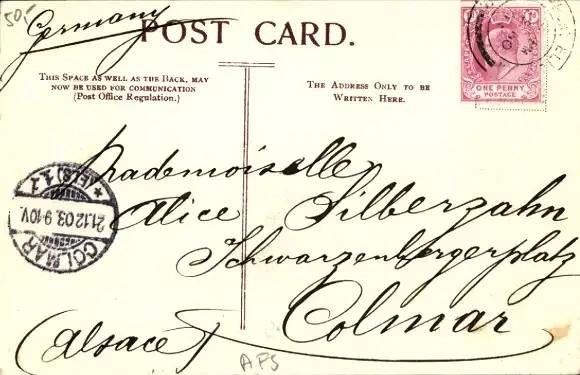 50/-
Germany
POST CARD.
THIS SPACE AS WELL AS THE BACK, MAY
NOW BE USED FOR COMMUNICATION
(Post Office Regulation.)
THE ADDRESS ONLY TO BE
WRITTEN HERE.
ONE PENNY
POSTAGE
Mademoiselle
Alice Silberzahn
Schwarzenbergerplatz
Colmar
(Alsace)
COLMAR
21.12.03. 9-10V.
* (ELS) 1. Z
APS